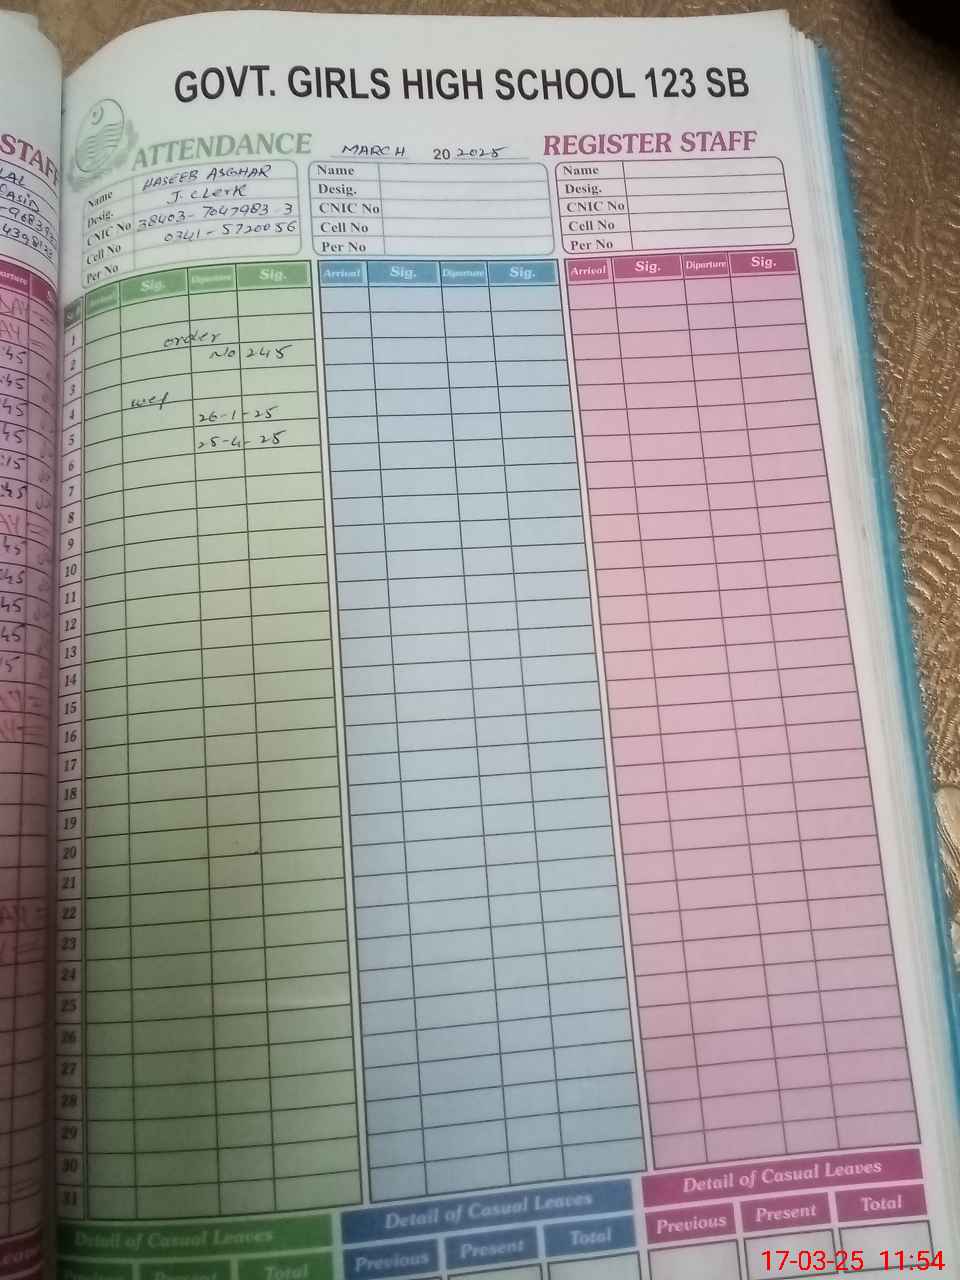 GOVT. GIRLS HIGH SCHOOL 123 SB
ATTENDANCE MARCH 20 2025 REGISTER STAFF
Name HASEEB ASGHAR
Desig. J. Clerk
CNIC No 38403-7047983-3
Cell No 0341-5720056
Per No
Name
Desig.
CNIC No
Cell No
Per No
Name
Desig.
CNIC No
Cell No
Per No
Arrival Sig. Diparture Sig. Arrival Sig. Diparture Sig. Arrival Sig. Diparture Sig.
1
order
2
No 245
3
wef
4
26-1-25
5
25-4-25
6
7
8
9
10
11
12
13
14
15
16
17
18
19
20
21
22
23
24
25
26
27
28
29
30
31
Detail of Casual Leaves Detail of Casual Leaves Detail of Casual Leaves
Previous Present Total
Previous Present Total
Present Total
17-03-25 11:54